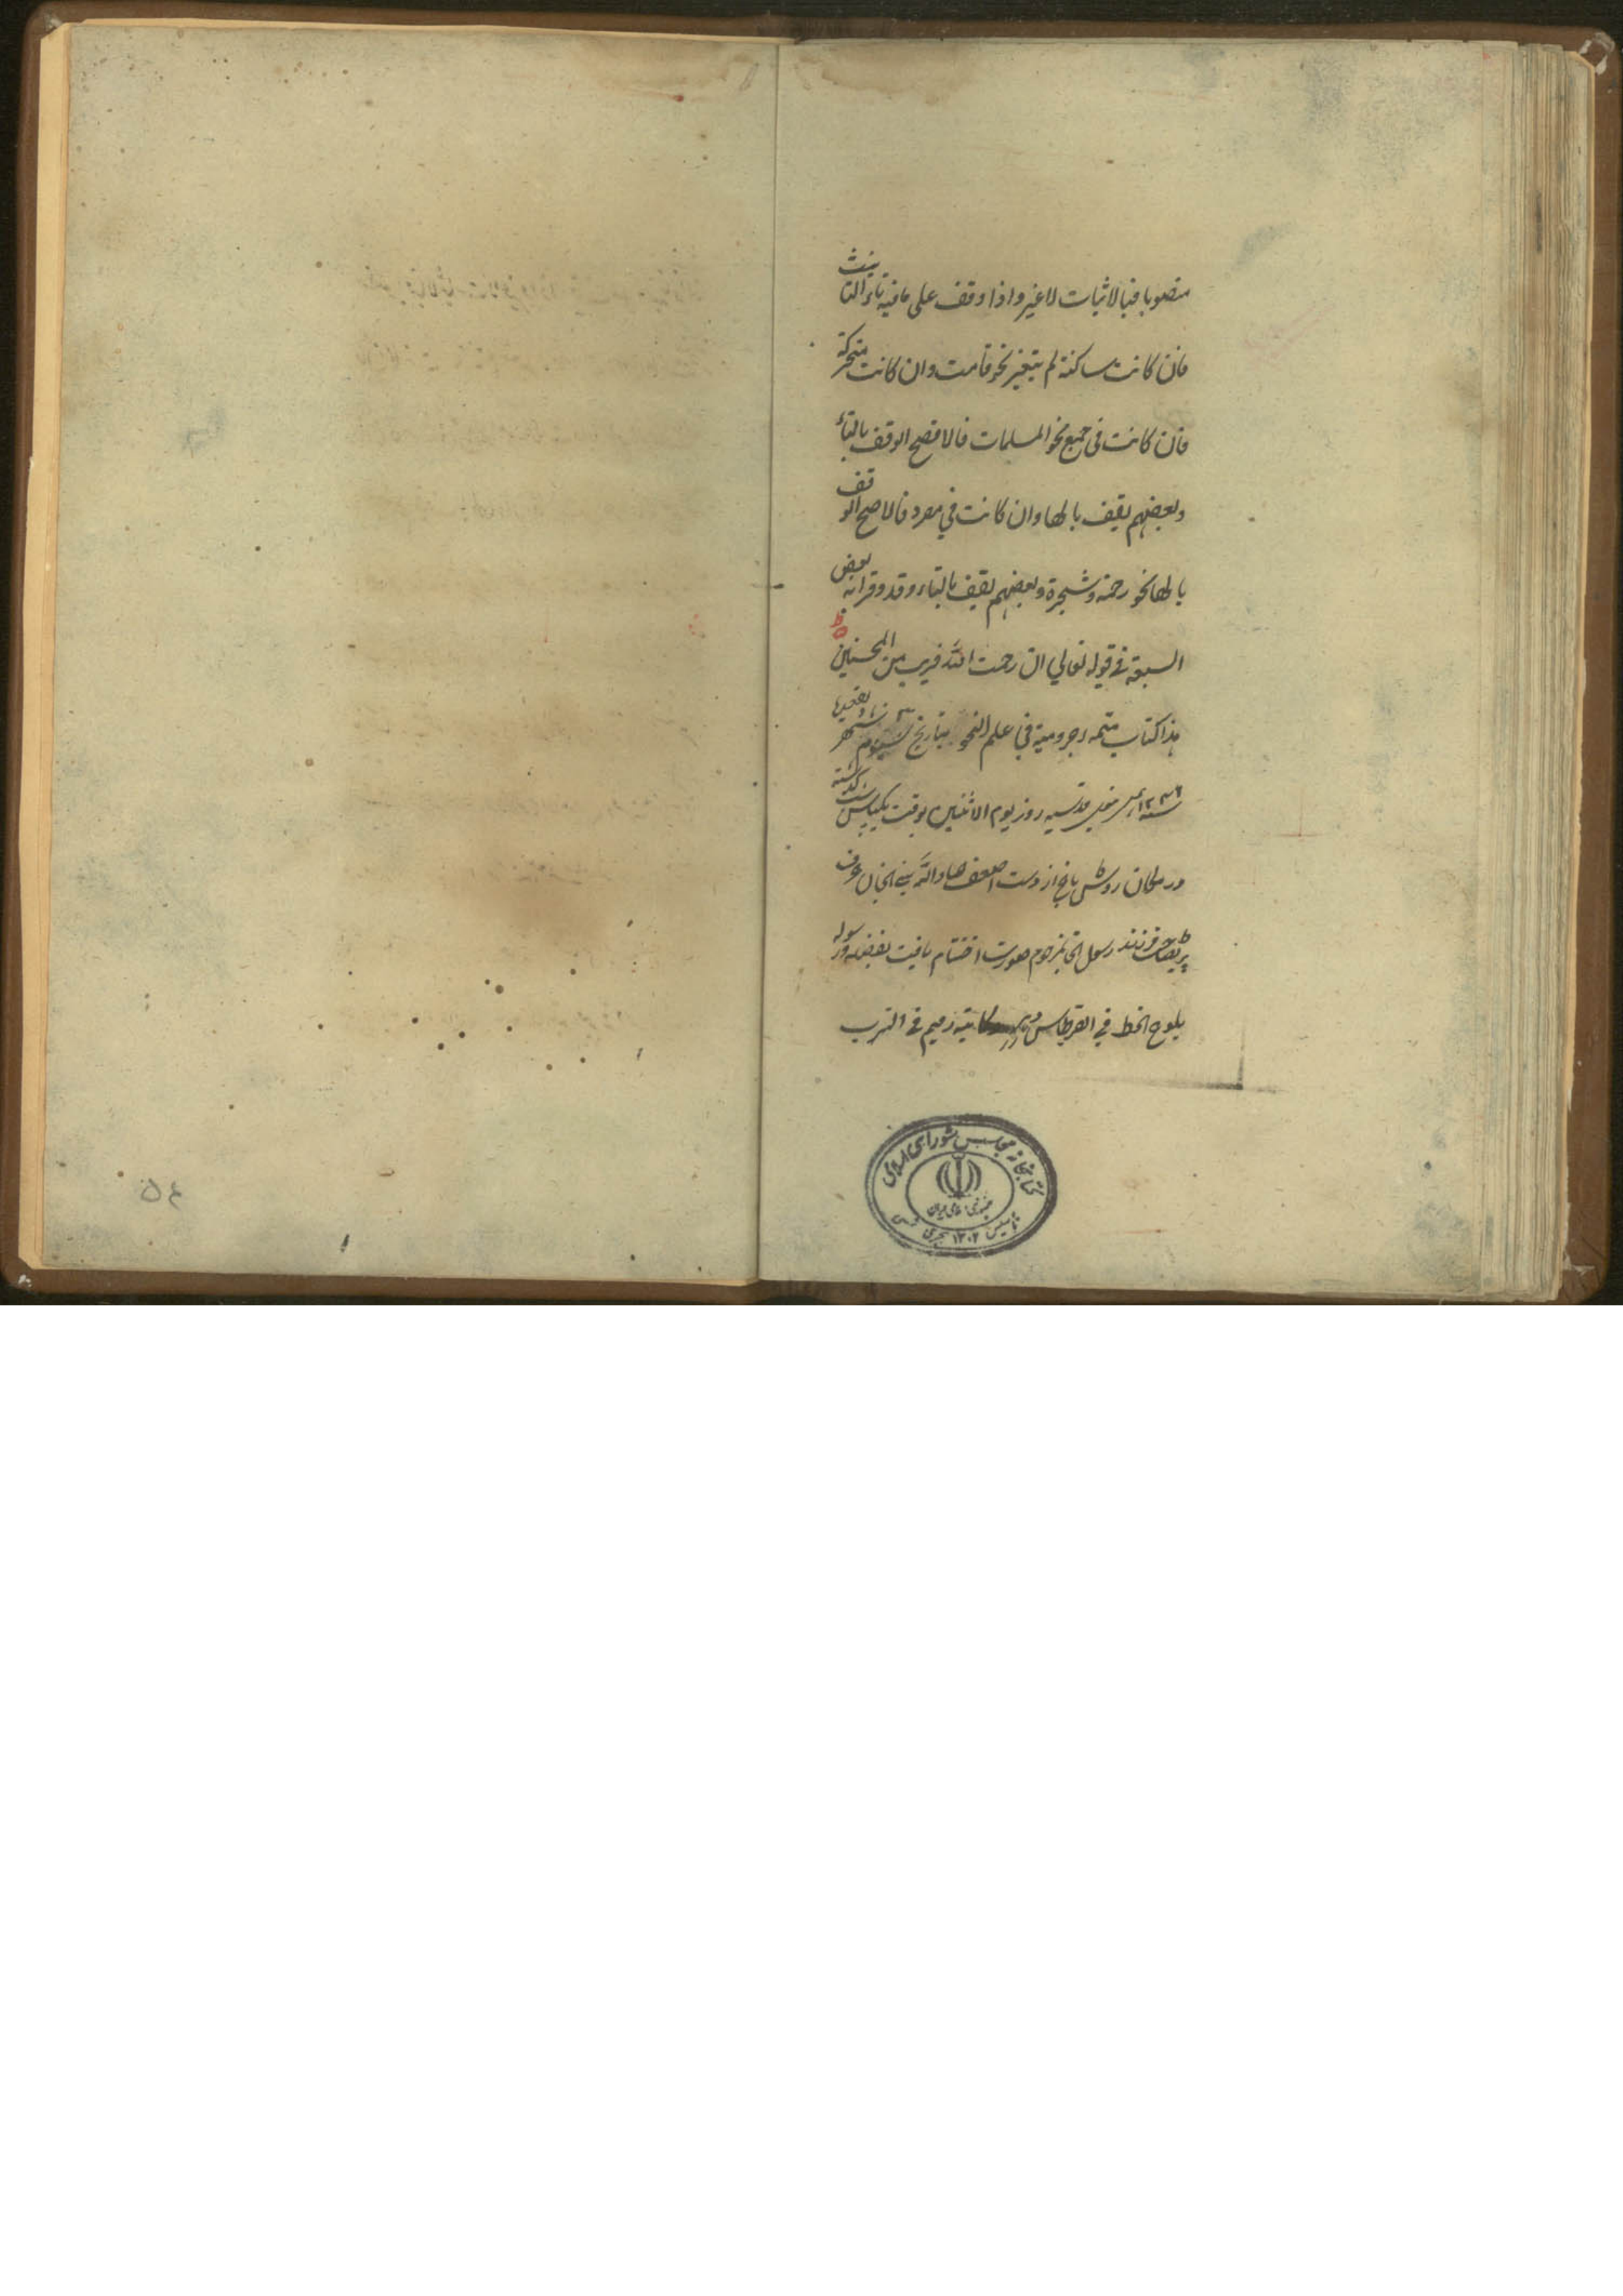 منصوبا فبالاثبات لاغیر واذا وقف علی مافیه تاء التانیث
فان کانت ساکنة لم یتغیر نحو قامت وان کانت متحرکة
فان کانت فی جمع نحو المسلمات فالافصح الوقف بالتاء
وبعضهم یقف بالها وان کانت فی مفرد فالافصح الوقف
بالها نحو رحمة وشجرة وبعضهم یقف بالتاء وقد وقرابه بعض
السبعة فی قوله تعالی ان رحمت الله قریب من المحسنین
هذا کتاب متمه اجرومیة فی علم النحو بتاریخ سیوم شهر
روز یوم الاثنین بوقت یکپاس گذشته
در مکان روشن باغ از دست اضعف عباد الله عرف
فرزند رسول مرحوم صورت اختتام یافت بفضله ورسوله
یلوح الخط فی القرطاس کاتبه رمیم فی الترب
کتابخانه مجلس شورای اسلامی
جمهوری اسلامی ایران
تاسیس ۱۳۰۲ هجری شمسی
۵۴